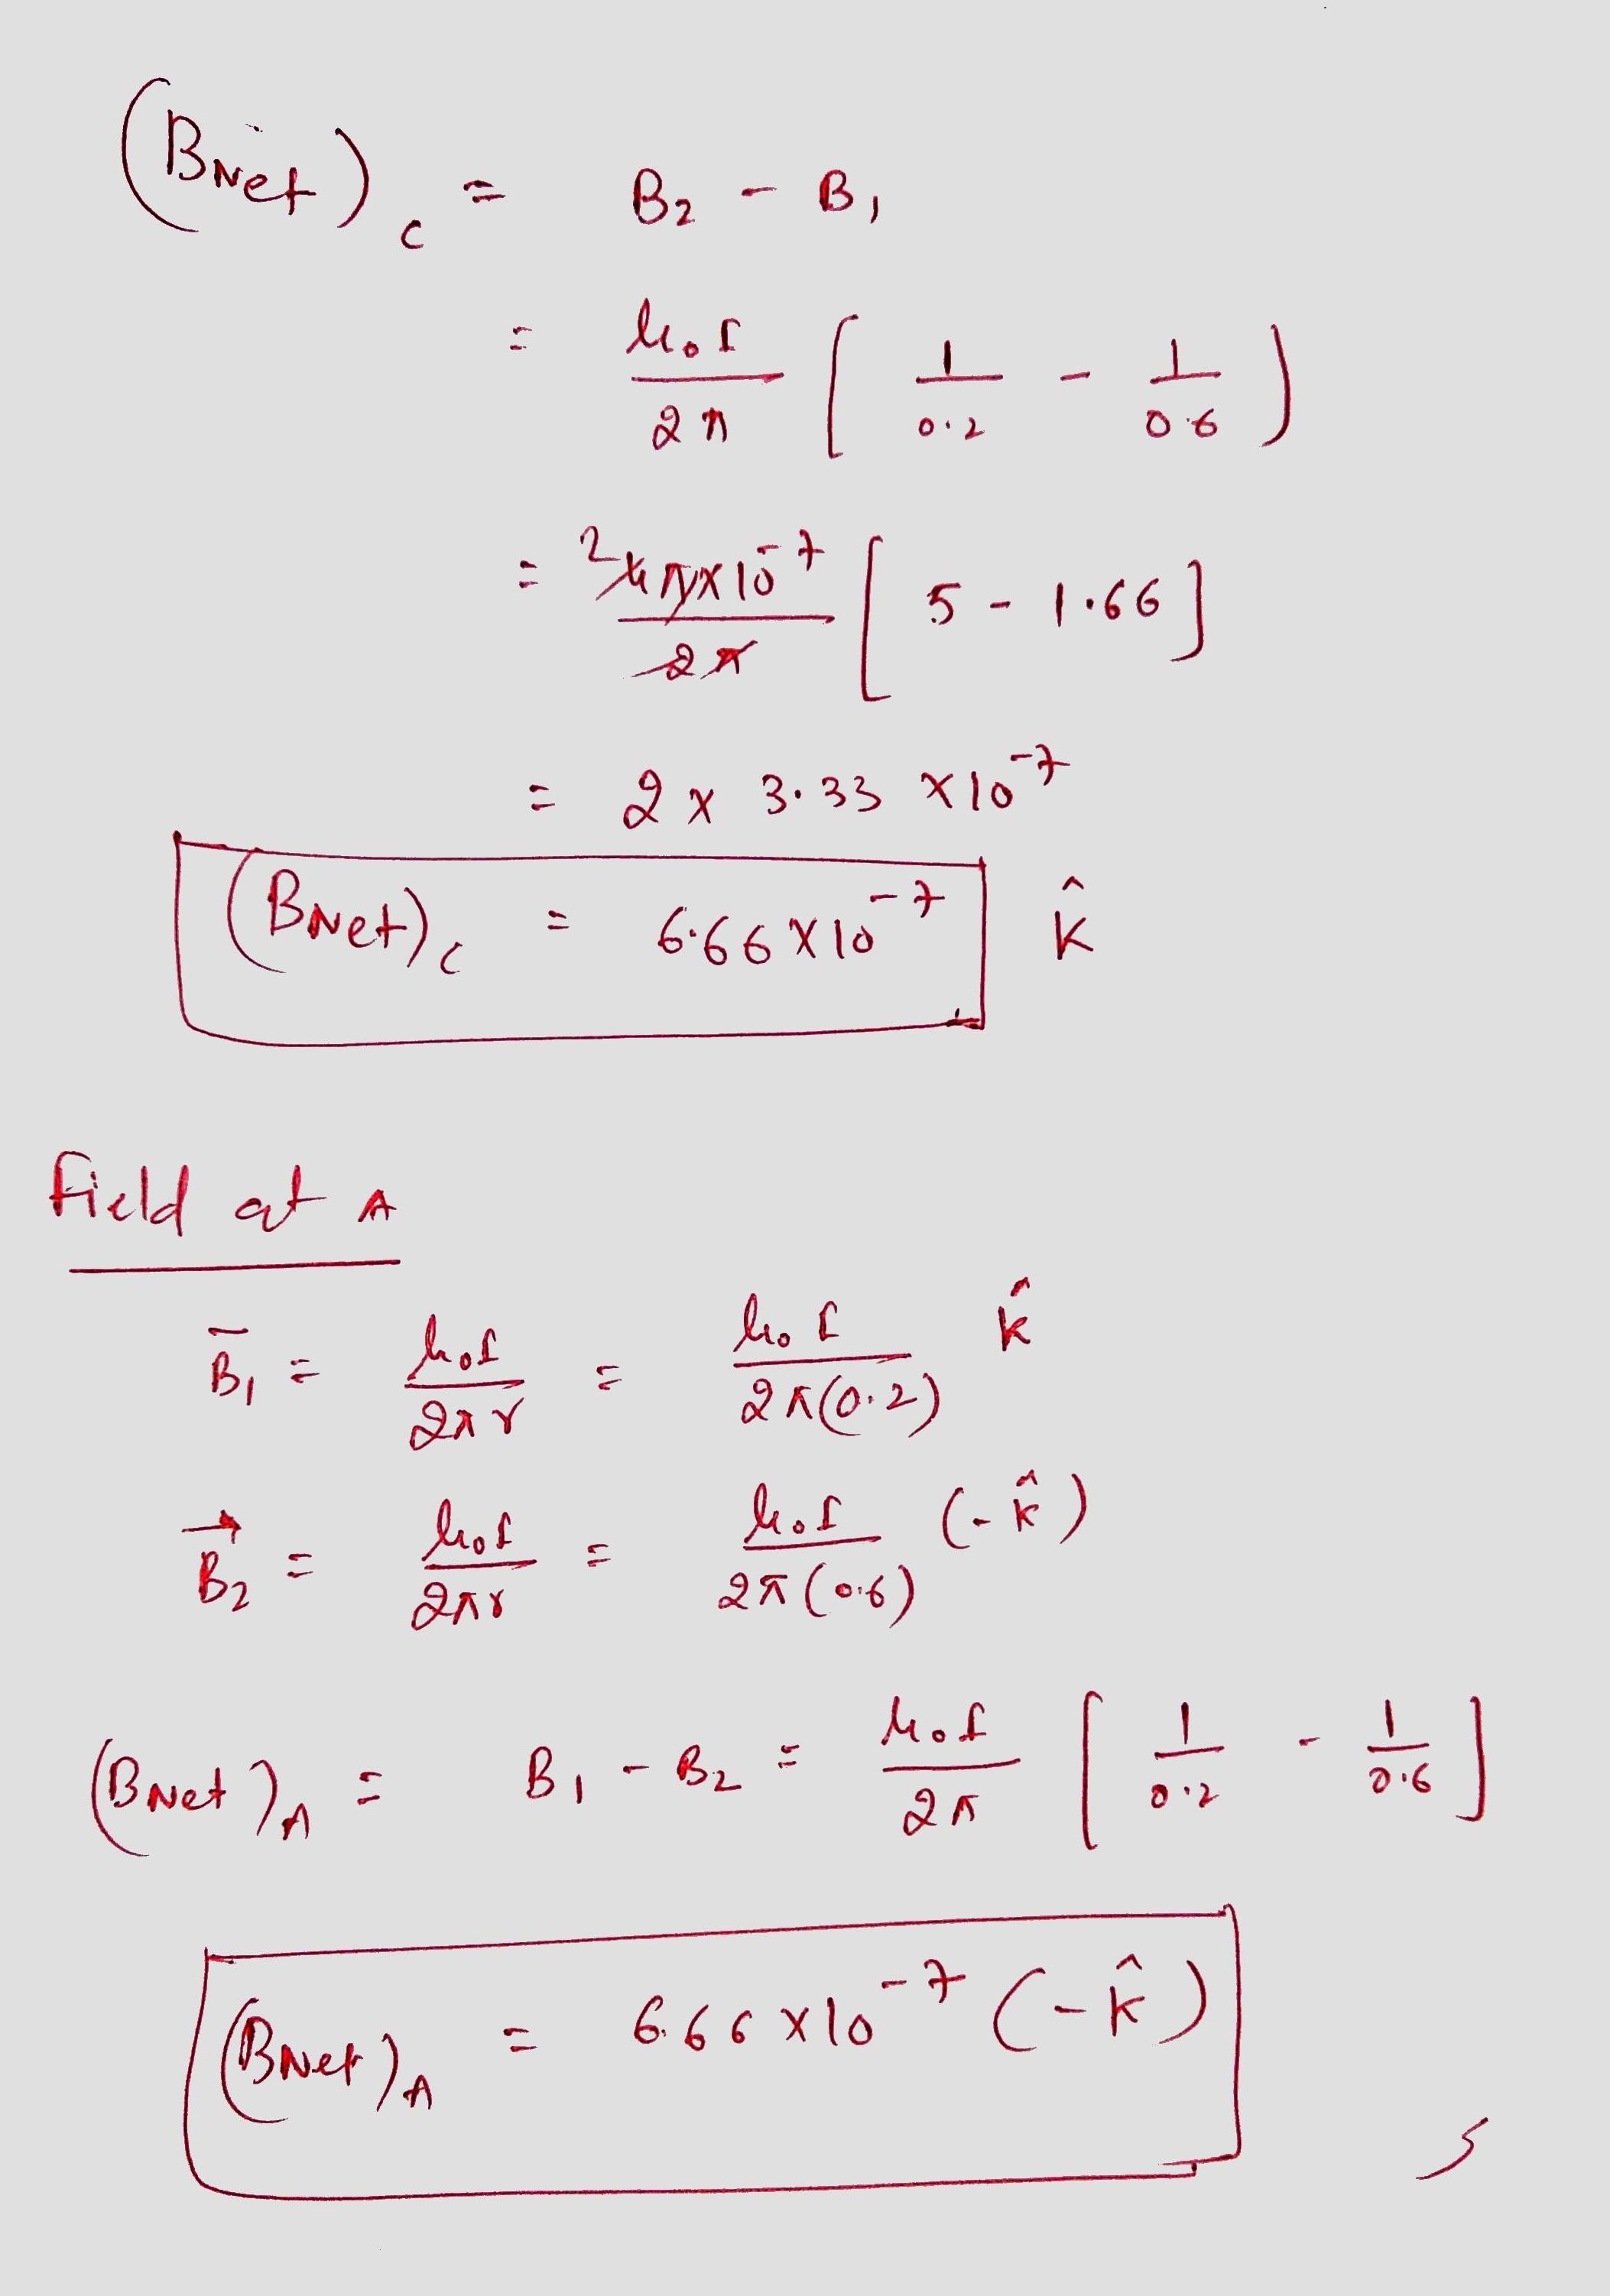 (BNet)c = B2 - B1
= μ0I/2π [1/0.2 - 1/0.6)
= 2 4π×10^-7/2π [5 - 1.66]
= 2 × 3.33 ×10^-7
(BNet)c = 6.66×10^-7 k̂
Field at A
B̄1 = μ0I/2πr = μ0I/2π(0.2) k̂
B⃗2 = μ0I/2πr = μ0I/2π(0.6) (-k̂)
(BNet)A = B1 - B2 = μ0I/2π [1/0.2 - 1/0.6]
(BNet)A = 6.66×10^-7 (-k̂)